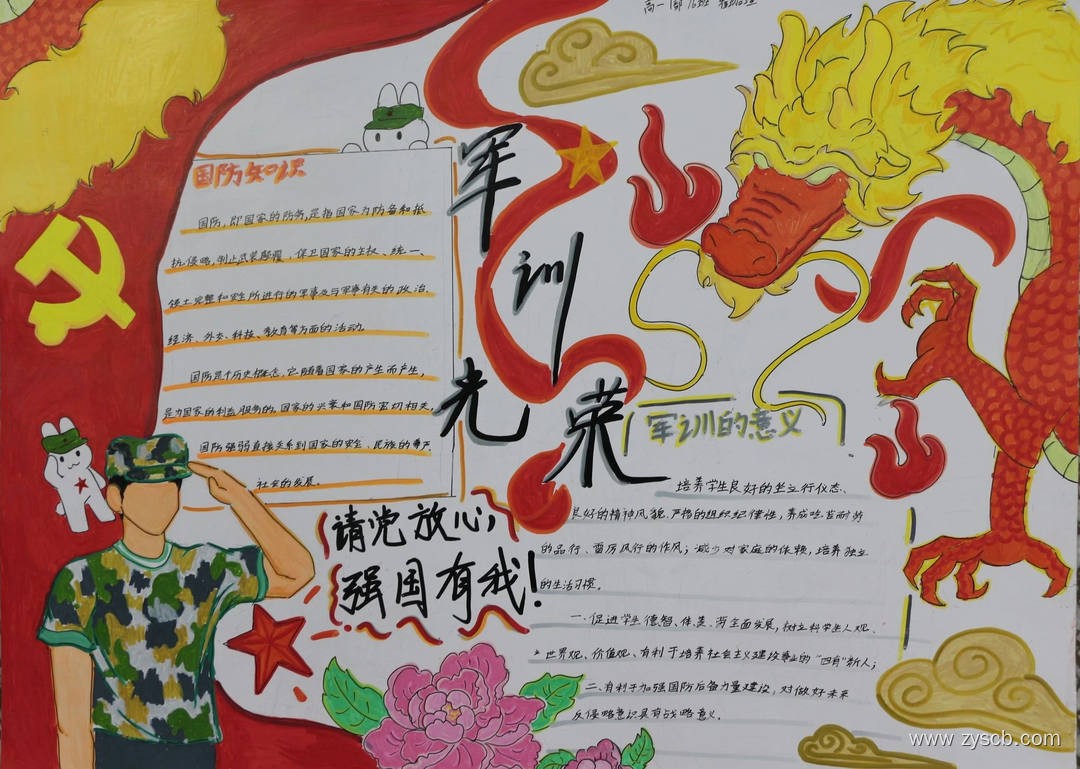 高一部16班
国防知识
国防，即国家的防务，是指国家为防备和抵
抗侵略，制止武装颠覆，保卫国家的主权、统一、
领土完整和安全所进行的军事及与军事有关的政治、
经济、外交、科技、教育等方面的活动。
国防是个历史概念，它随着国家的产生而产生，
是为国家的利益服务的。国家的兴衰和国防密切相关，
国防强弱直接关系到国家的安全、民族的尊严
社会的发展。
军训光荣
请党放心，
强国有我！
军训的意义
培养学生良好的坐立行仪态、
良好的精神风貌、严格的组织纪律性，养成吃苦耐劳
的品行、雷厉风行的作风；减少对家庭的依赖，培养独立
的生活习惯。
一、促进学生德智、体、美、劳全面发展，树立科学人观、
世界观、价值观、有利于培养社会主义建设事业的“四有”新人；
二、有利于加强国防后备力量建设，对做好未来
反侵略意识具有战略意义。
www.zyscb.com